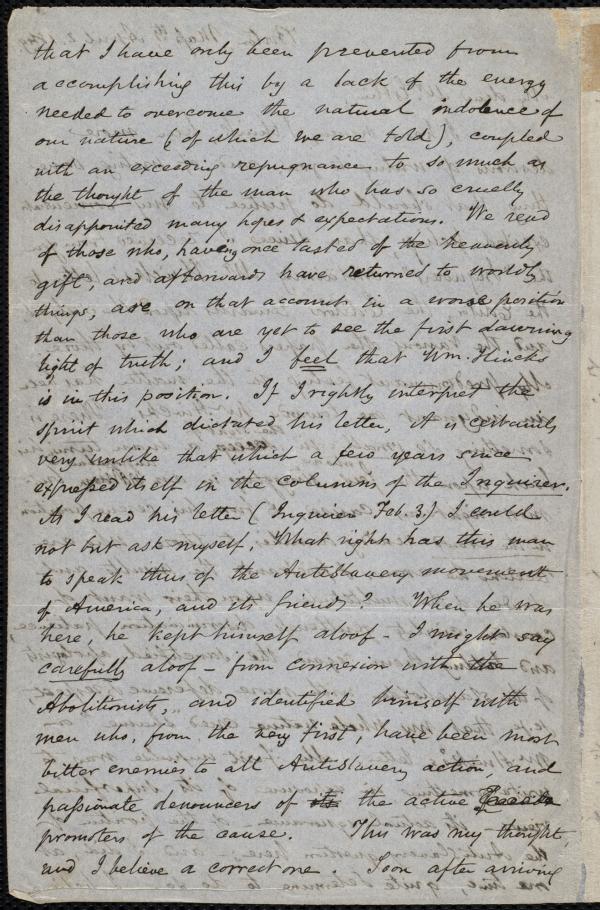 that I have only been prevented from
accomplishing this by a lack of the energy
needed to overcome the natural indolence of
our nature (of which we are told), coupled
with an exceeding repugnance to so much as
the thought of the man who has so cruelly
disappointed many hopes & expectations. We read
of those who, having once tasted of the heavenly
gift, and afterwards have returned to worldly
things, are on that account in a worse position
than those who are yet to see the first dawning
light of truth; and I feel that Wm. Hincks
is in this position. If I rightly interpret the
spirit which dictated his letter, it is certainly
very unlike that which a few years since
expressed itself in the columns of the Inquirer.
As I read his letter (Inquirer Feb. 3.) I could
not but ask myself, What right has this man
to speak thus of the Antislavery movement
of America, and its friends? When he was
here, he kept himself aloof - I might say
carefully aloof - from connexion with the
Abolitionists, and identified himself with
men who, from the very first, have been most
bitter enemies to all Antislavery action, and
passionate denouncers of its the active
promoters of the cause. This was my thought,
and I believe a correct one. Soon after arriving